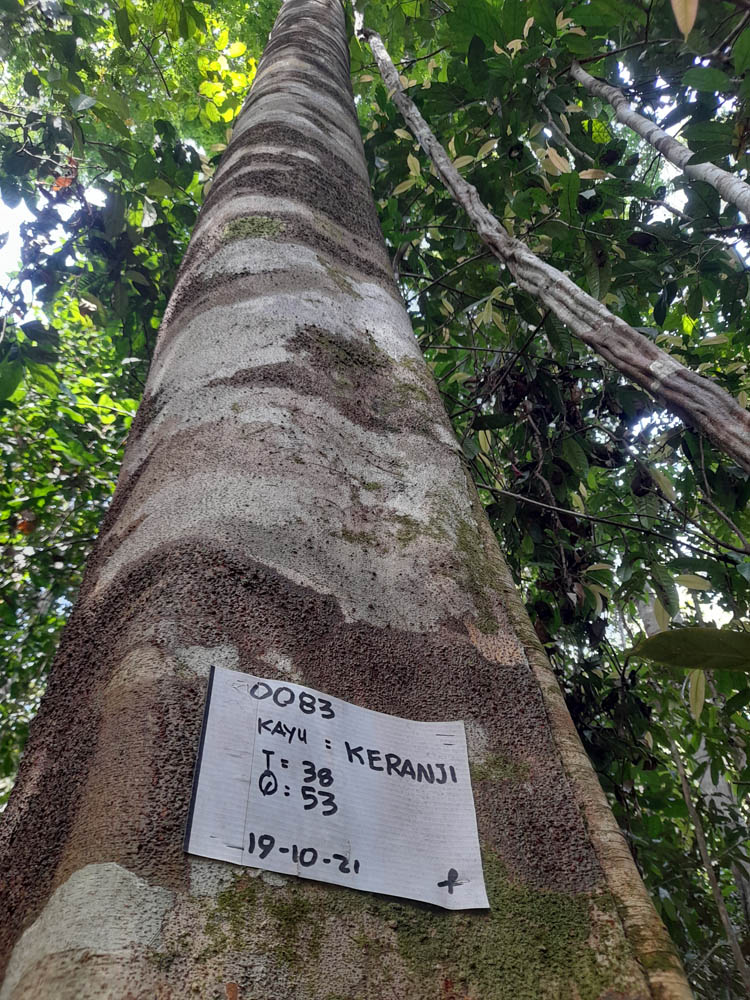 0083
KAYU : KERANJI
T = 38
Ø : 53
19-10-21